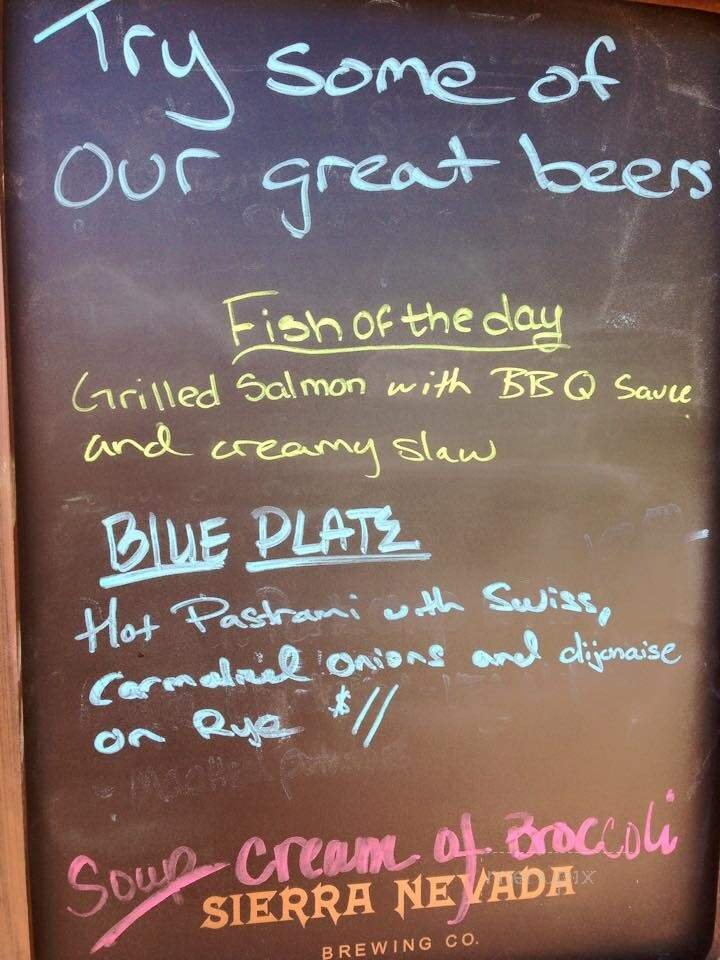 Try some of
our great beers
Fish of the day
Grilled Salmon with BBQ Sauce
and creamy slaw
BLUE PLATE
Hot Pastrami with Swiss,
Carmalized onions and dijonaise
on Rye $11
Soup Cream of Broccoli
SIERRA NEVADA
BREWING CO.